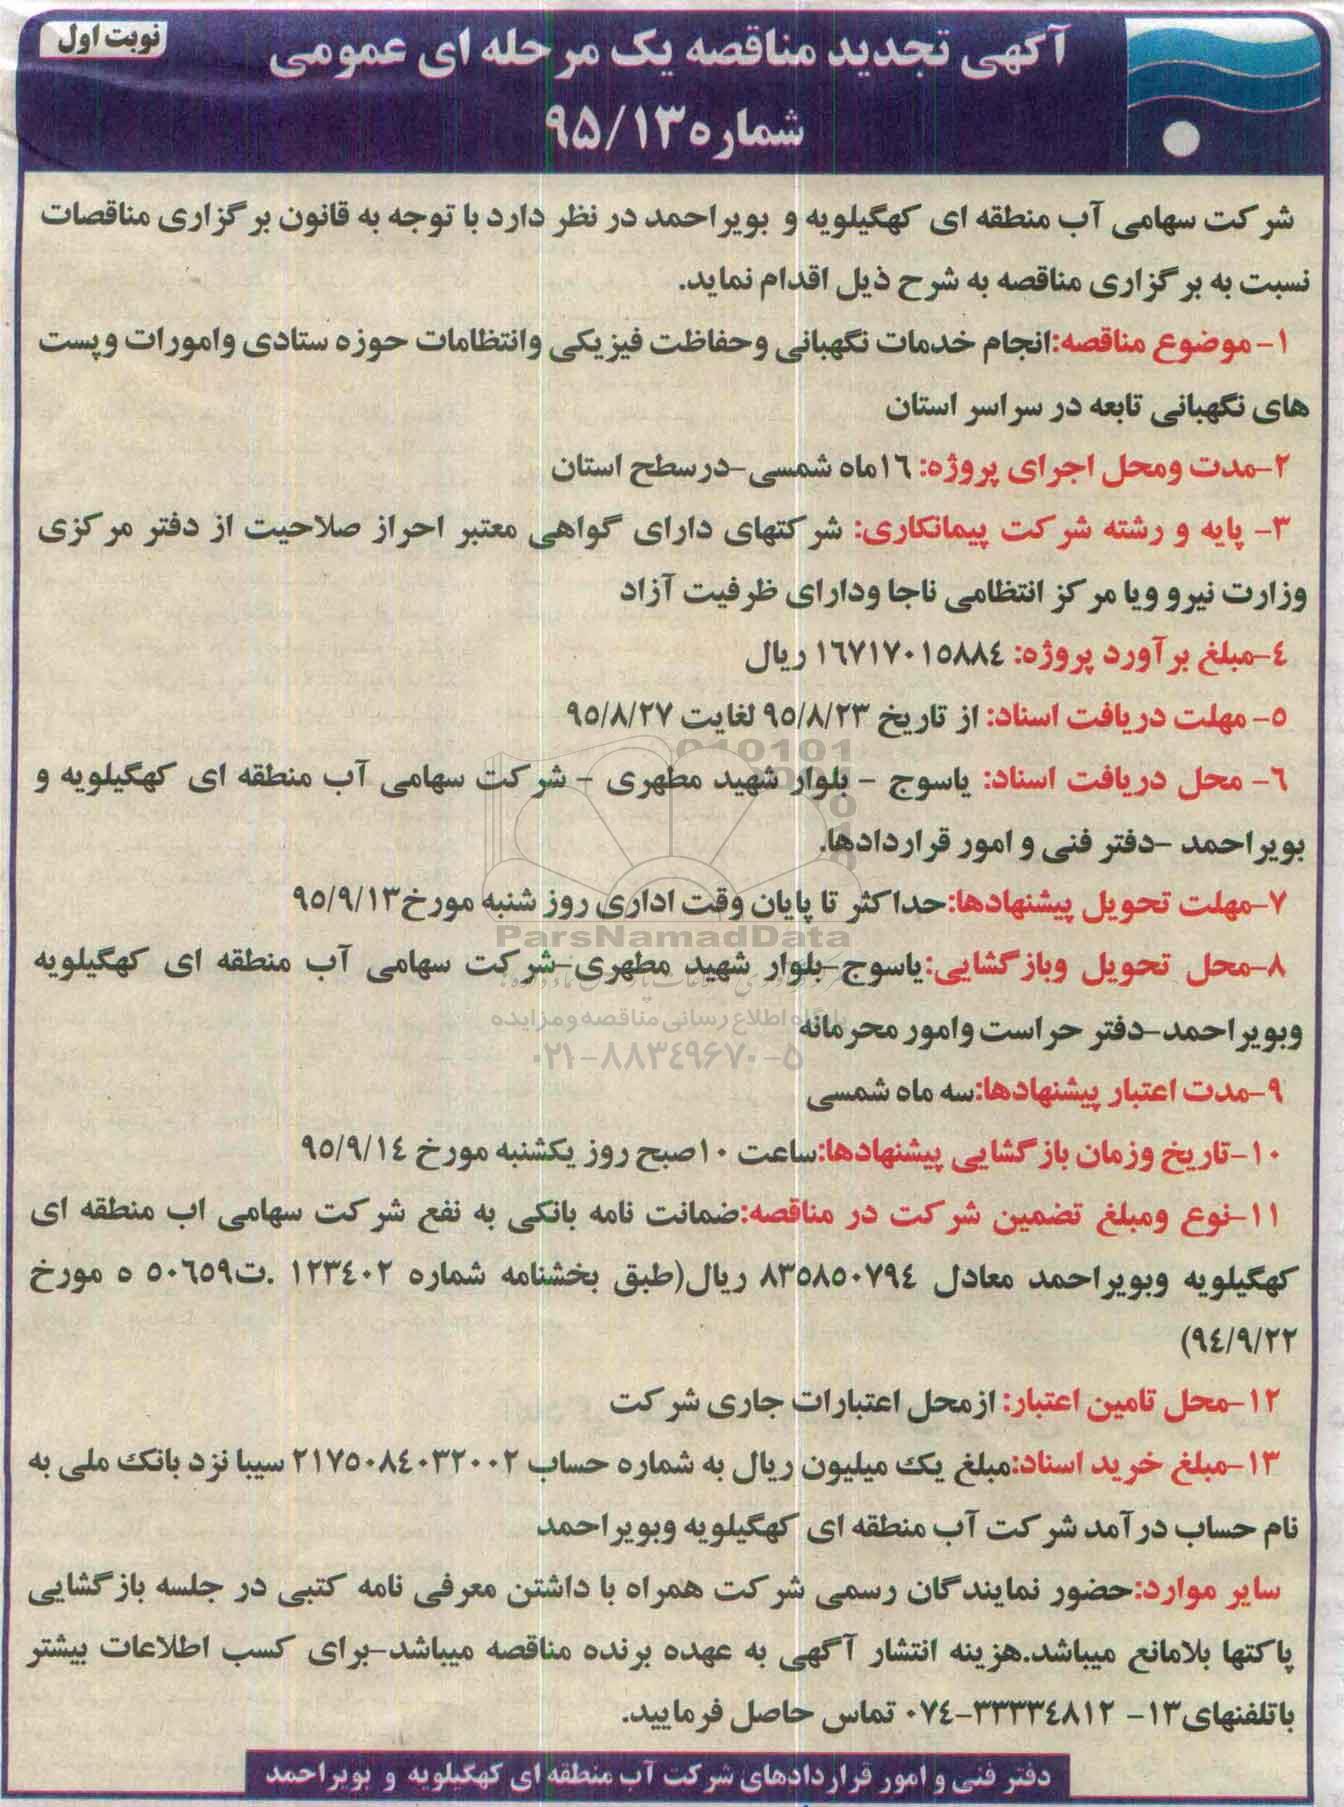 نوبت اول
آگهی تجدید مناقصه یک مرحله ای عمومی
شماره ۹۵/۱۳
شرکت سهامی آب منطقه ای کهگیلویه و بویراحمد در نظر دارد با توجه به قانون برگزاری مناقصات
نسبت به برگزاری مناقصه به شرح ذیل اقدام نماید.
۱- موضوع مناقصه:انجام خدمات نگهبانی وحفاظت فیزیکی وانتظامات حوزه ستادی وامورات وپست
های نگهبانی تابعه در سراسر استان
۲-مدت ومحل اجرای پروژه: ۱۶ماه شمسی-درسطح استان
۳- پایه و رشته شرکت پیمانکاری: شرکتهای دارای گواهی معتبر احراز صلاحیت از دفتر مرکزی
وزارت نیرو ویا مرکز انتظامی ناجا ودارای ظرفیت آزاد
۴-مبلغ برآورد پروژه: ۱۶۷۱۷۰۱۵۸۸۴ ریال
۵- مهلت دریافت اسناد: از تاریخ ۹۵/۸/۲۳ لغایت ۹۵/۸/۲۷
۶- محل دریافت اسناد: یاسوج - بلوار شهید مطهری - شرکت سهامی آب منطقه ای کهگیلویه و
بویراحمد -دفتر فنی و امور قراردادها.
۷-مهلت تحویل پیشنهادها:حداکثر تا پایان وقت اداری روز شنبه مورخ۹۵/۹/۱۳
ParsNamadData
۸-محل تحویل وبازگشایی:یاسوج-بلوار شهید مطهری-شرکت سهامی آب منطقه ای کهگیلویه
پایگاه اطلاع رسانی مناقصه و مزایده
وبویراحمد-دفتر حراست وامور محرمانه
۰۲۱-۸۸۳۴۹۶۷۰-۵
۹-مدت اعتبار پیشنهادها:سه ماه شمسی
۱۰-تاریخ وزمان بازگشایی پیشنهادها:ساعت ۱۰صبح روز یکشنبه مورخ ۹۵/۹/۱۴
۱۱-نوع ومبلغ تضمین شرکت در مناقصه:ضمانت نامه بانکی به نفع شرکت سهامی اب منطقه ای
کهگیلویه وبویراحمد معادل ۸۳۵۸۵۰۷۹۴ ریال(طبق بخشنامه شماره ۱۲۳۴۰۲ .ت۵۰۶۵۹ ه مورخ
۹۴/۹/۲۲)
۱۲-محل تامین اعتبار: ازمحل اعتبارات جاری شرکت
۱۳-مبلغ خرید اسناد:مبلغ یک میلیون ریال به شماره حساب ۲۱۷۵۰۸۴۰۳۲۰۰۲ سیبا نزد بانک ملی به
نام حساب درآمد شرکت آب منطقه ای کهگیلویه وبویراحمد
سایر موارد:حضور نمایندگان رسمی شرکت همراه با داشتن معرفی نامه کتبی در جلسه بازگشایی
پاکتها بلامانع میباشد.هزینه انتشار آگهی به عهده برنده مناقصه میباشد-برای کسب اطلاعات بیشتر
باتلفنهای۱۳- ۰۷۴-۳۳۳۳۴۸۱۲ تماس حاصل فرمایید.
دفتر فنی و امور قراردادهای شرکت آب منطقه ای کهگیلویه و بویراحمد